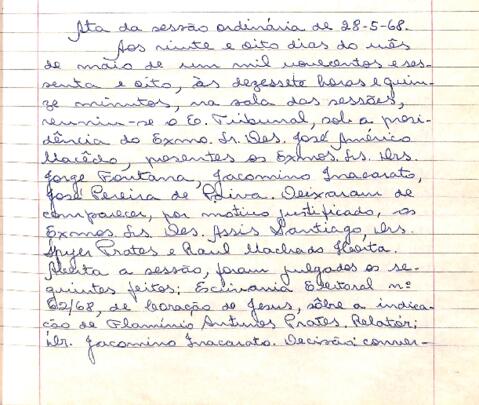 Ata da sessão ordinária de 28-5-68.
Aos vinte e oito dias do mês
de máio de um mil novecentos e ses-
senta e oito, às dezessete horas e quin-
ze minutos, na sala das sessões,
reuniu-se o E. Tribunal, sob a presi-
dência do Exmo. Sr. Des. José Américo
Macêdo, presentes os Exmos. Srs. Drs.
Jorge Fontana, Jacomino Inacarato,
José Pereira de Paiva. Deixaram de
comparecer, por motivo justificado, os
Exmos. Srs. Des. Assis Santiago, Drs.
Spyer Prates e Raul Machado Horta.
Aberta a sessão, foram julgados os se-
guintes feitos: Escrivania Eleitoral nº
62/68, de Coração de Jesus, sôbre a indica-
ção de Flamínio Antunes Prates. Relator:
Dr. Jacomino Inacarato. Decisão: conver-